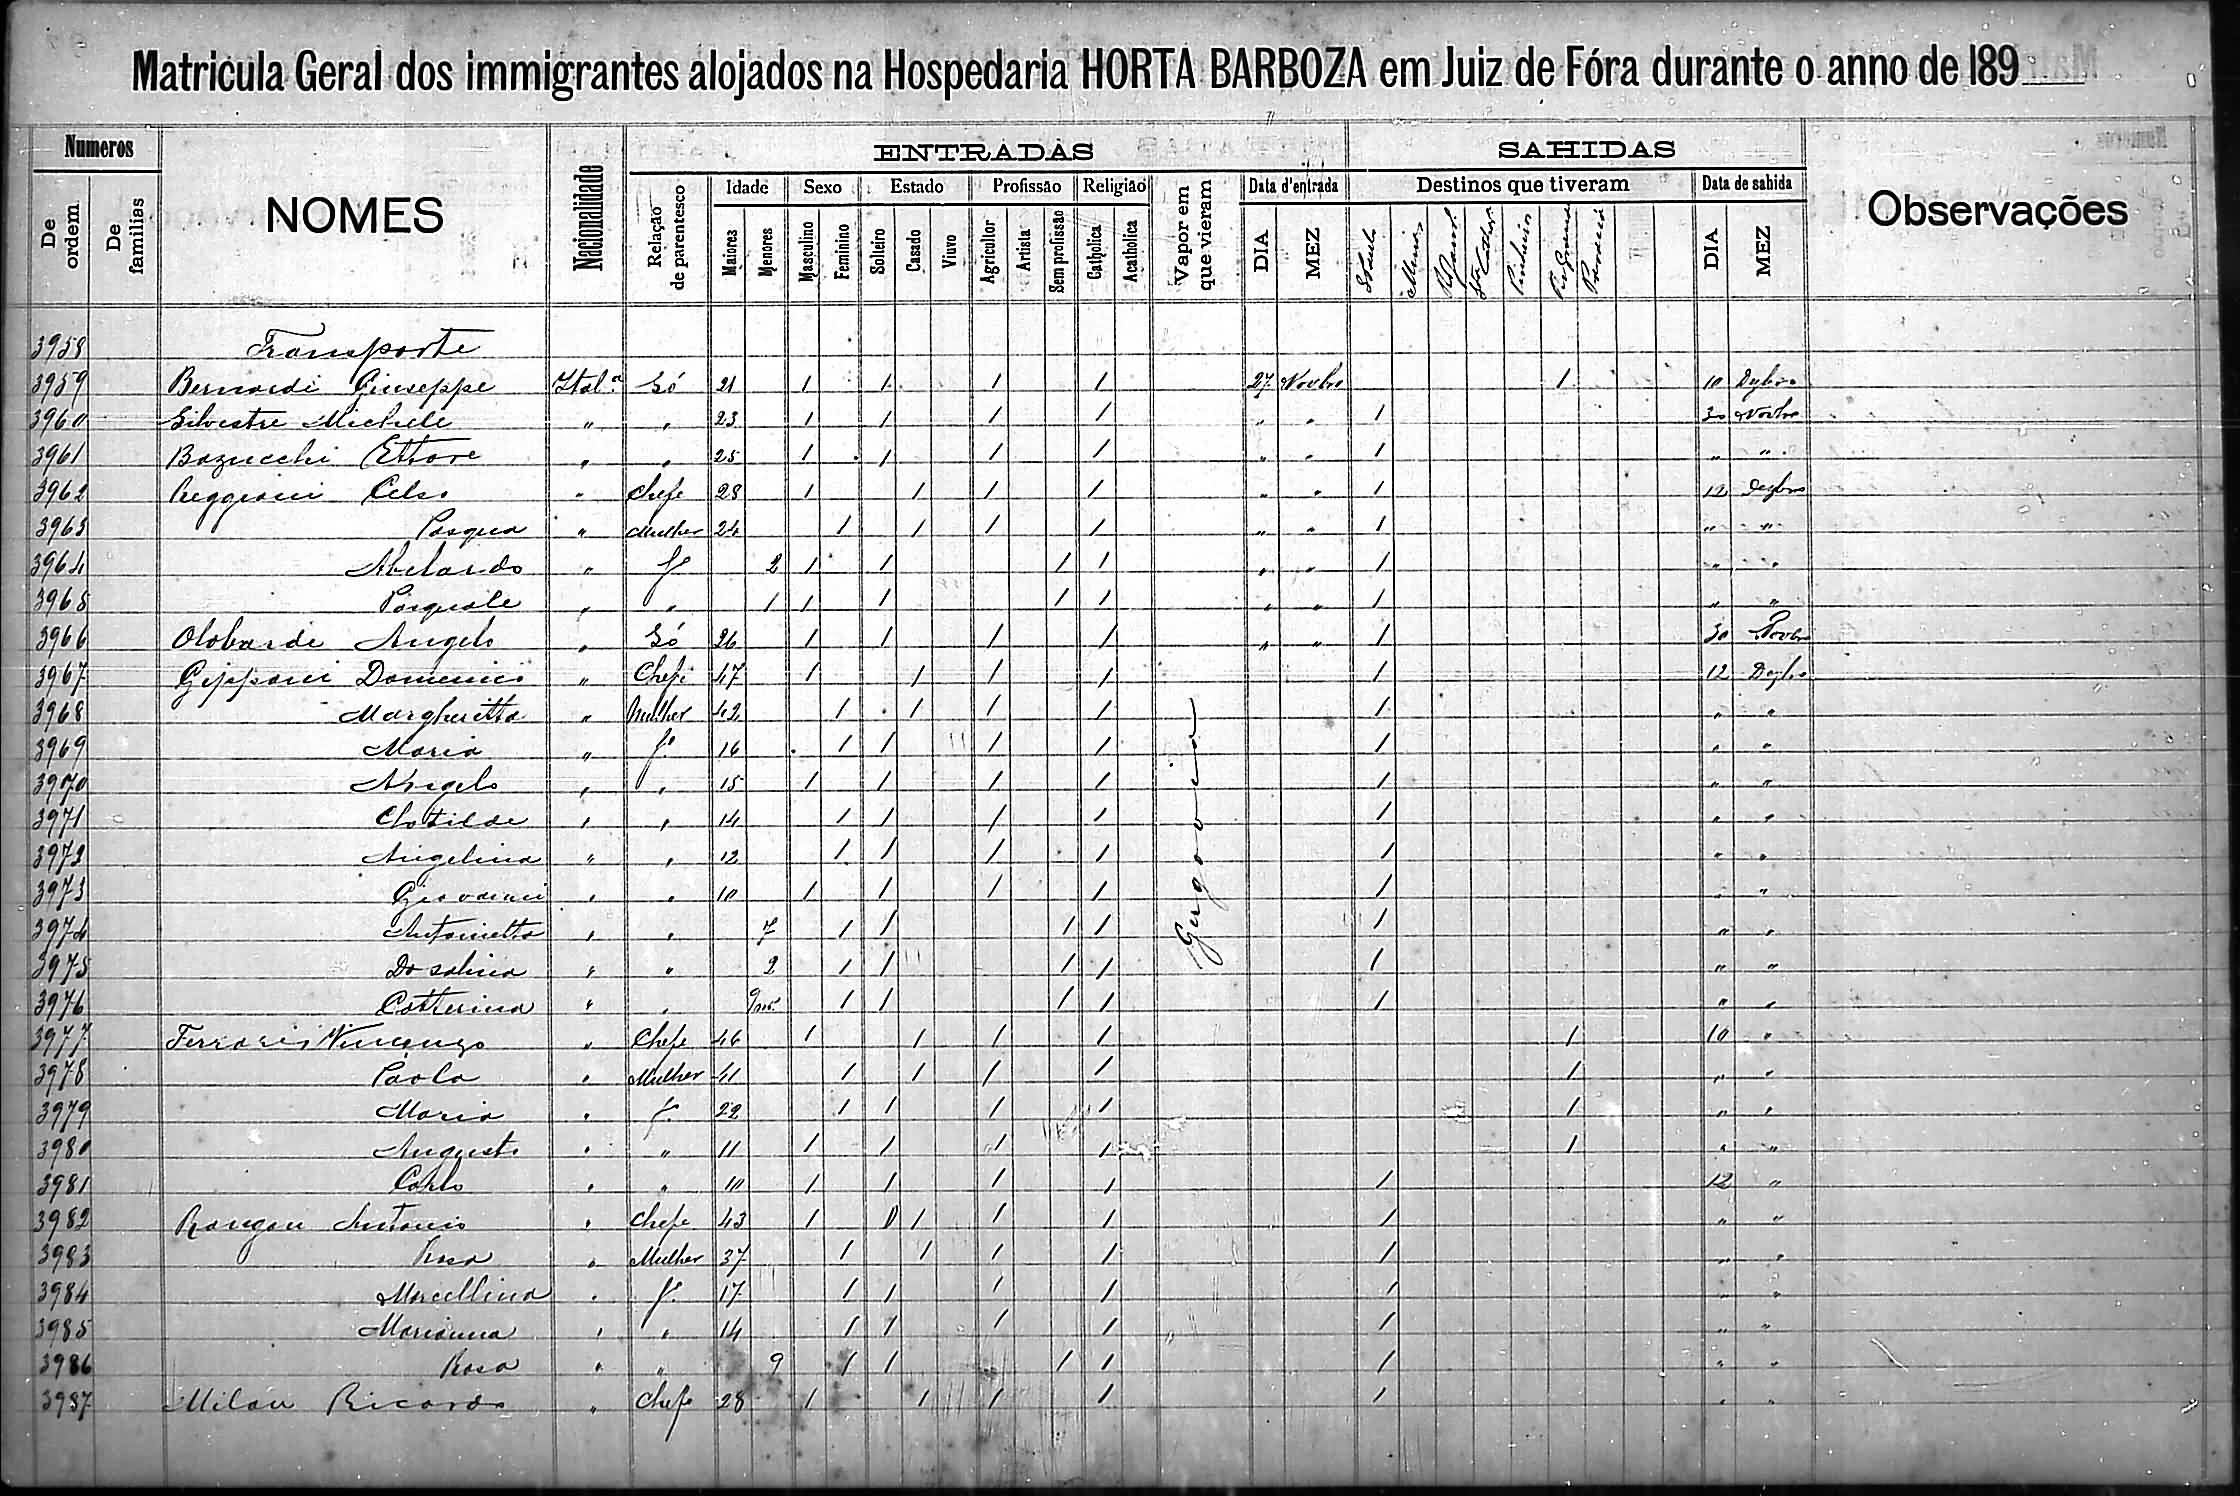 Matricula Geral dos immigrantes alojados na Hospedaria HORTA BARBOZA em Juiz de Fóra durante o anno de 189
Numeros ENTRADAS SAHIDAS
De ordem De familias NOMES Nacionalidade Relação de parentesco Idade Sexo Estado Profissão Religião Vapor em que vieram Data d'entrada Destinos que tiveram Data de sahida Observações
Maiores Menores Masculino Feminino Solteiro Casado Viuvo Agricultor Artista Sem profissão Catholica Acatholica DIA MEZ S Paulo Minas Pinheiro DIA MEZ
3958 Transporte
3959 Bernardi Giuseppe Ital.ª Só 21 1 1 1 1 27 Novbro 1 10 Dezbro
3960 Silvestre Michele " " 23 1 1 1 1 " " 1 30 Novbro
3961 Bazucchi Ettore " " 25 1 1 1 1 " " 1 " "
3962 Celso " Chefe 28 1 1 1 1 " " 1 12 Dezbro
3963 Pasqua " Mulher 24 1 1 1 1 " " 1 " "
3964 Abelardo " fº 2 1 1 1 1 " " 1 " "
3965 Pasquale " " 1 1 1 1 1 " " 1 " "
3966 Olobardi Angelo " Só 26 1 1 1 1 " " 1 30 Novbro
3967 Gipponi Domenico " Chefe 47 1 1 1 1 1 12 Dezbro
3968 Margheritta " Mulher 42 1 1 1 1 1 " "
3969 Maria " fº 16 1 1 1 1 1 " "
3970 Angelo " " 15 1 1 1 1 1 " "
3971 Clotilde " " 14 1 1 1 1 1 " "
3972 Angelina " " 12 1 1 1 1 1 " "
3973 Giovanni " " 10 1 1 1 1 1 " "
3974 Antonietta " " 7 1 1 1 1 1 " "
3975 " " 2 1 1 1 1 1 " "
3976 Catterina " " 1 1 1 1 1 " "
Gergovia
3977 Ferrari Vincenzo " Chefe 46 1 1 1 1 1 10 "
3978 Paola " Mulher 41 1 1 1 1 1 " "
3979 Maria " fº 22 1 1 1 1 1 " "
3980 Augusto " " 11 1 1 1 1 1 " "
3981 Carlo " " 10 1 1 1 1 1 12 "
3982 Rangon Antonio " Chefe 43 1 1 1 1 1 " "
3983 Rosa " Mulher 37 1 1 1 1 1 " "
3984 Marcellina " fº 17 1 1 1 1 1 " "
3985 Marianna " " 14 1 1 1 1 " 1 " "
3986 Rosa " " 9 1 1 1 1 1 " "
3987 Milan Ricardo " Chefe 28 1 1 1 1 1 " "